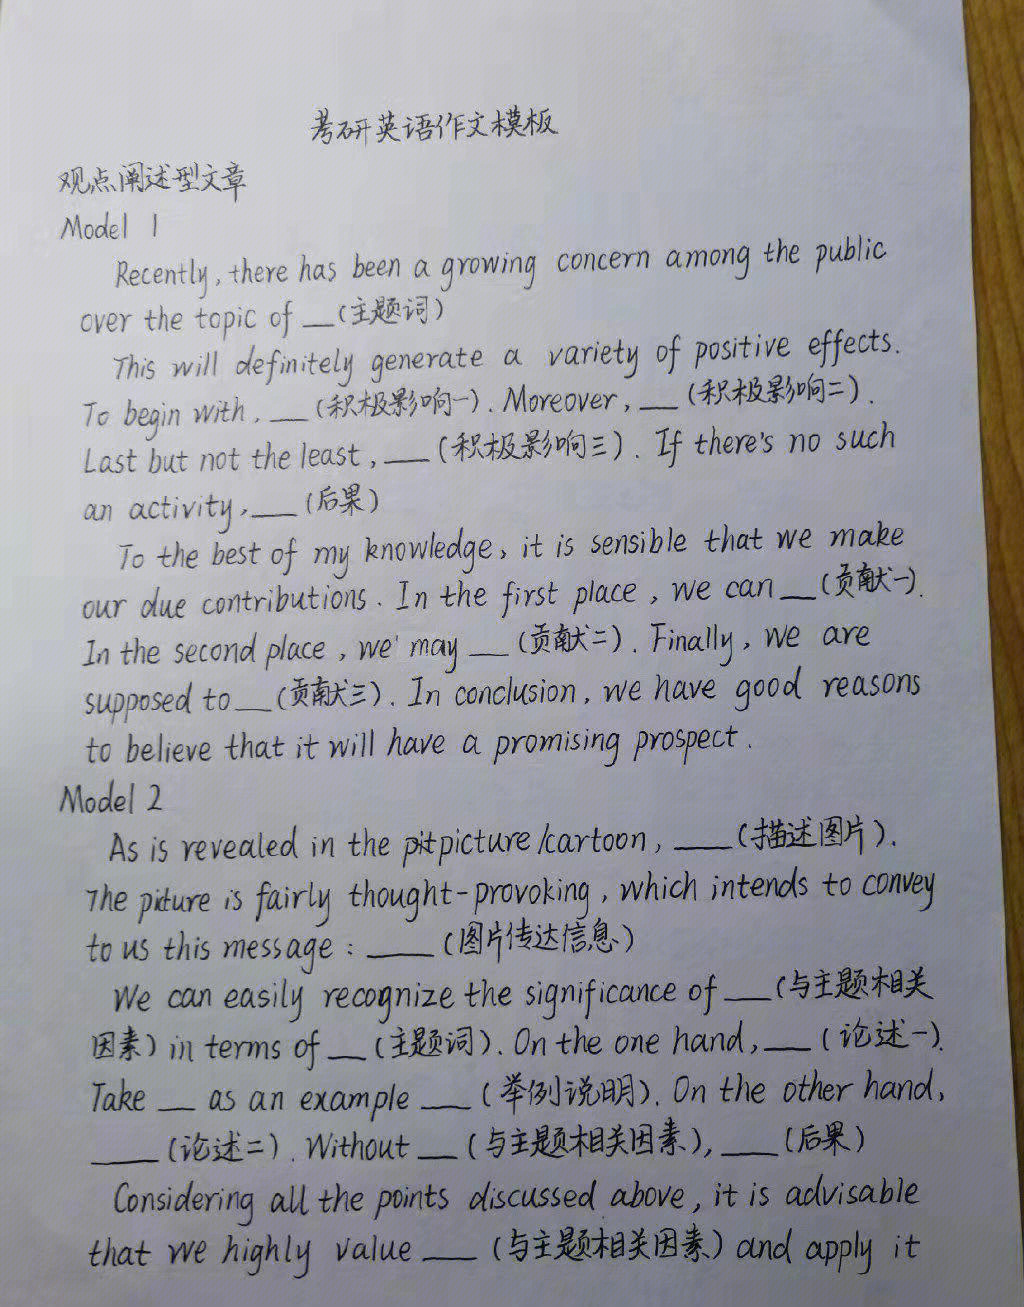 考研英语作文模板
观点阐述型文章
Model 1
Recently, there has been a growing concern among the public
over the topic of __(主题词)
This will definitely generate a variety of positive effects.
To begin with, __ (积极影响一). Moreover, __ (积极影响二).
Last but not the least, __ (积极影响三). If there's no such
an activity, __ (后果)
To the best of my knowledge, it is sensible that we make
our due contributions. In the first place, we can __ (贡献一).
In the second place, we may __ (贡献二). Finally, we are
supposed to __ (贡献三). In conclusion, we have good reasons
to believe that it will have a promising prospect.
Model 2
As is revealed in the picture/cartoon, __ (描述图片).
The picture is fairly thought-provoking, which intends to convey
to us this message: __ (图片传达信息)
We can easily recognize the significance of __ (与主题相关
因素) in terms of __ (主题词). On the one hand, __ (论述一).
Take __ as an example __ (举例说明). On the other hand,
__ (论述二). Without __ (与主题相关因素), __ (后果)
Considering all the points discussed above, it is advisable
that we highly value __ (与主题相关因素) and apply it